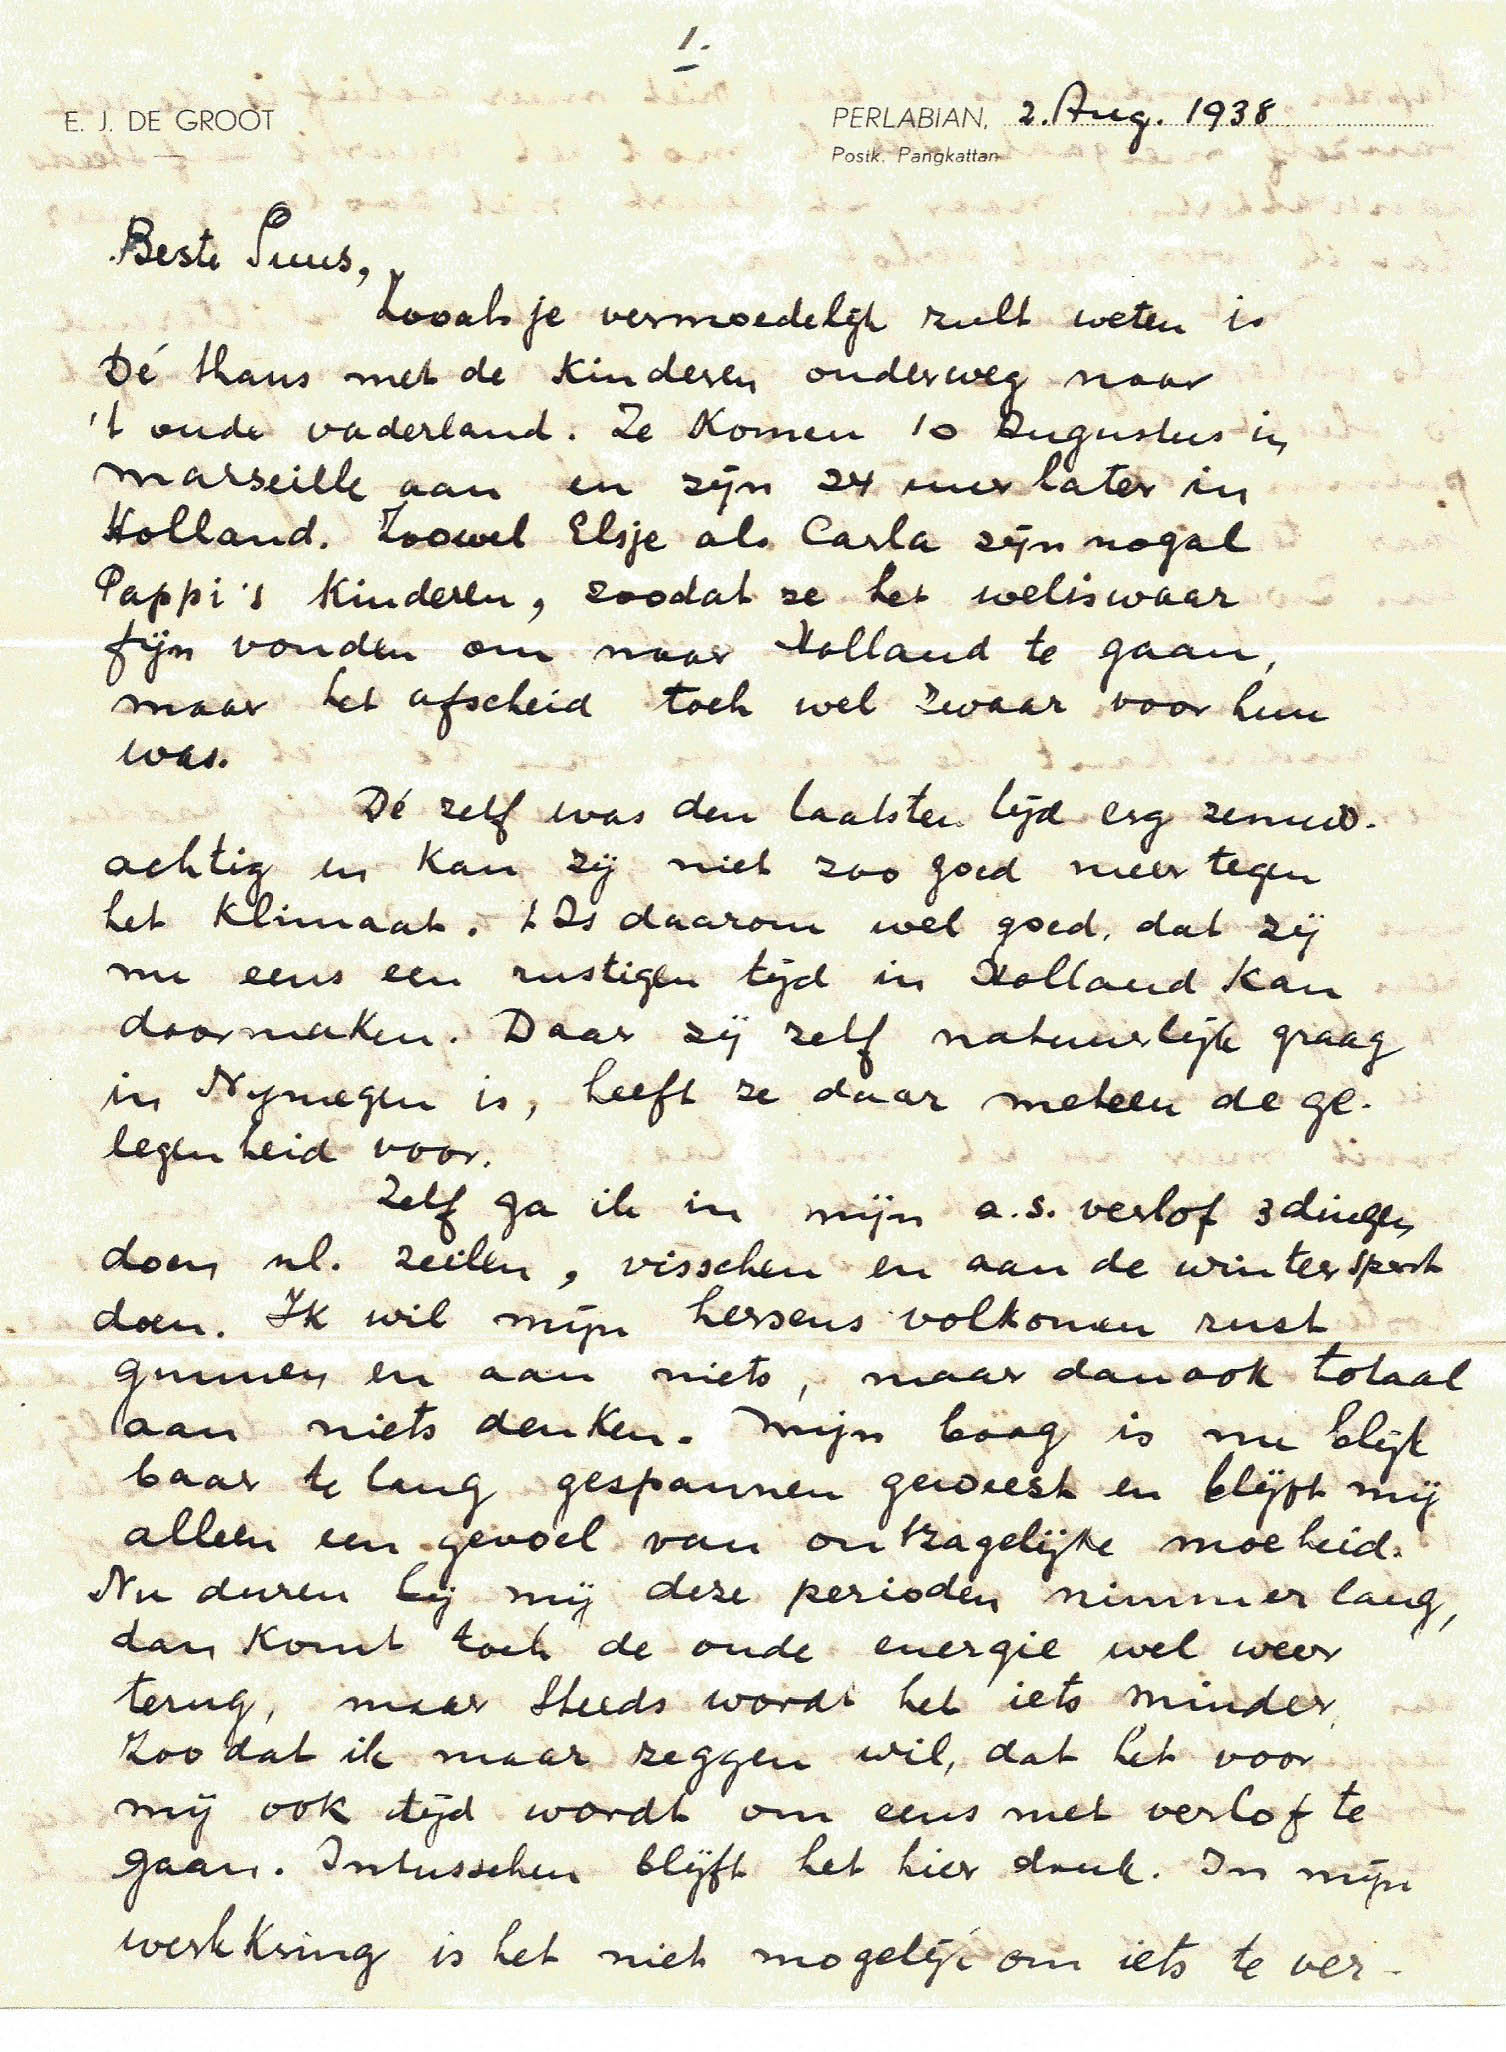 1.
E. J. DE GROOT
PERLABIAN, 2. Aug. 1938
Postk. Pangkattan
Beste Puus,
Zooals je vermoedelijk zult weten is
Dé thans met de kinderen onderweg naar
't oude vaderland. Ze komen 10 Augustus in
Marseille aan en zijn 24 uur later in
Holland. Zoowel Elsje als Carla zijn nogal
Pappi's kinderen, zoodat ze het weliswaar
fijn vonden om naar Holland te gaan,
maar het afscheid toch wel zwaar voor hun
was.
Dé zelf was den laatsten tijd erg zenuw-
achtig en kan zij niet zoo goed meer tegen
het klimaat. 't Is daarom wel goed, dat zij
nu eens een rustigen tijd in Holland kan
doormaken. Daar zij zelf natuurlijk graag
in Nymegen is, heeft ze daar meteen de ge-
legenheid voor.
Zelf ga ik in mijn a.s. verlof 3 dingen
doen nl. zeilen, visschen en aan de wintersport
doen. Ik wil mijn hersens volkomen rust
gunnen en aan niets, maar dan ook totaal
aan niets denken. Mijn boog is nu blijk
baar te lang gespannen geweest en blijft mij
alleen een gevoel van ontzagelijke moeheid.
Nu duren bij mij deze perioden nimmer lang,
dan komt toch de oude energie wel weer
terug, maar steeds wordt het iets minder,
zoodat ik maar zeggen wil, dat het voor
mij ook tijd wordt om eens met verlof te
gaan. Intusschen blijft het hier druk. In mijn
werkkring is het niet mogelijk om iets te ver-